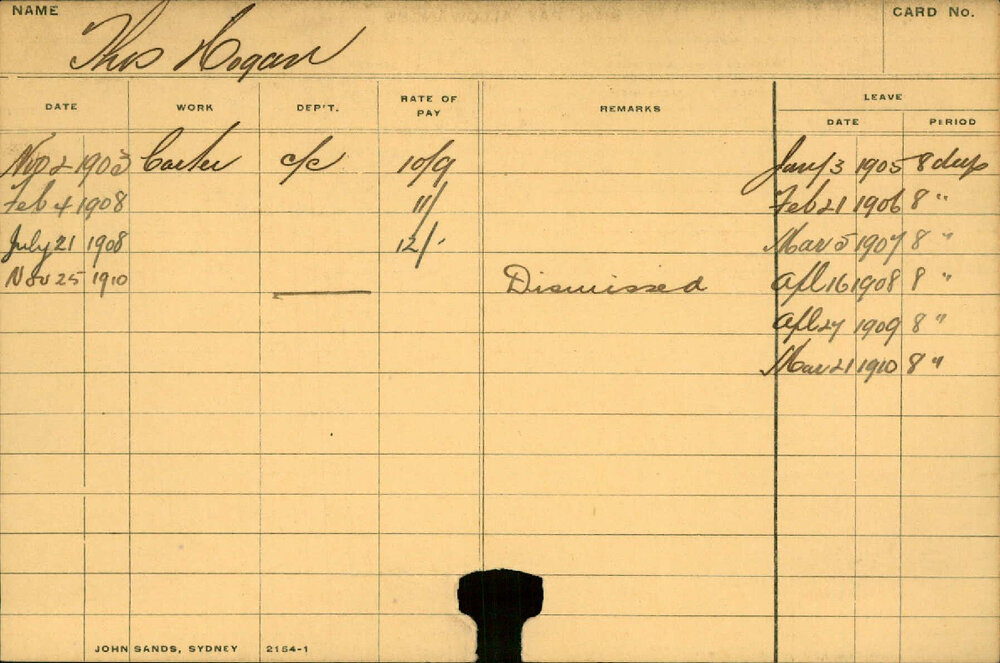 NAME
CARD No.
Thos Hogan
DATE WORK DEP'T. RATE OF PAY REMARKS LEAVE
DATE PERIOD
Nov 2 1903 Carter c/c 10/9 Jany 3 1905 8 days
Feb 4 1908 11/ Feb 21 1906 8 "
July 21 1908 12/- Mar 5 1907 8 "
Nov 25 1910 Dismissed Apl 16 1908 8 "
Apl 27 1909 8 "
Mar 21 1910 8 "
JOHN SANDS, SYDNEY 2154-1